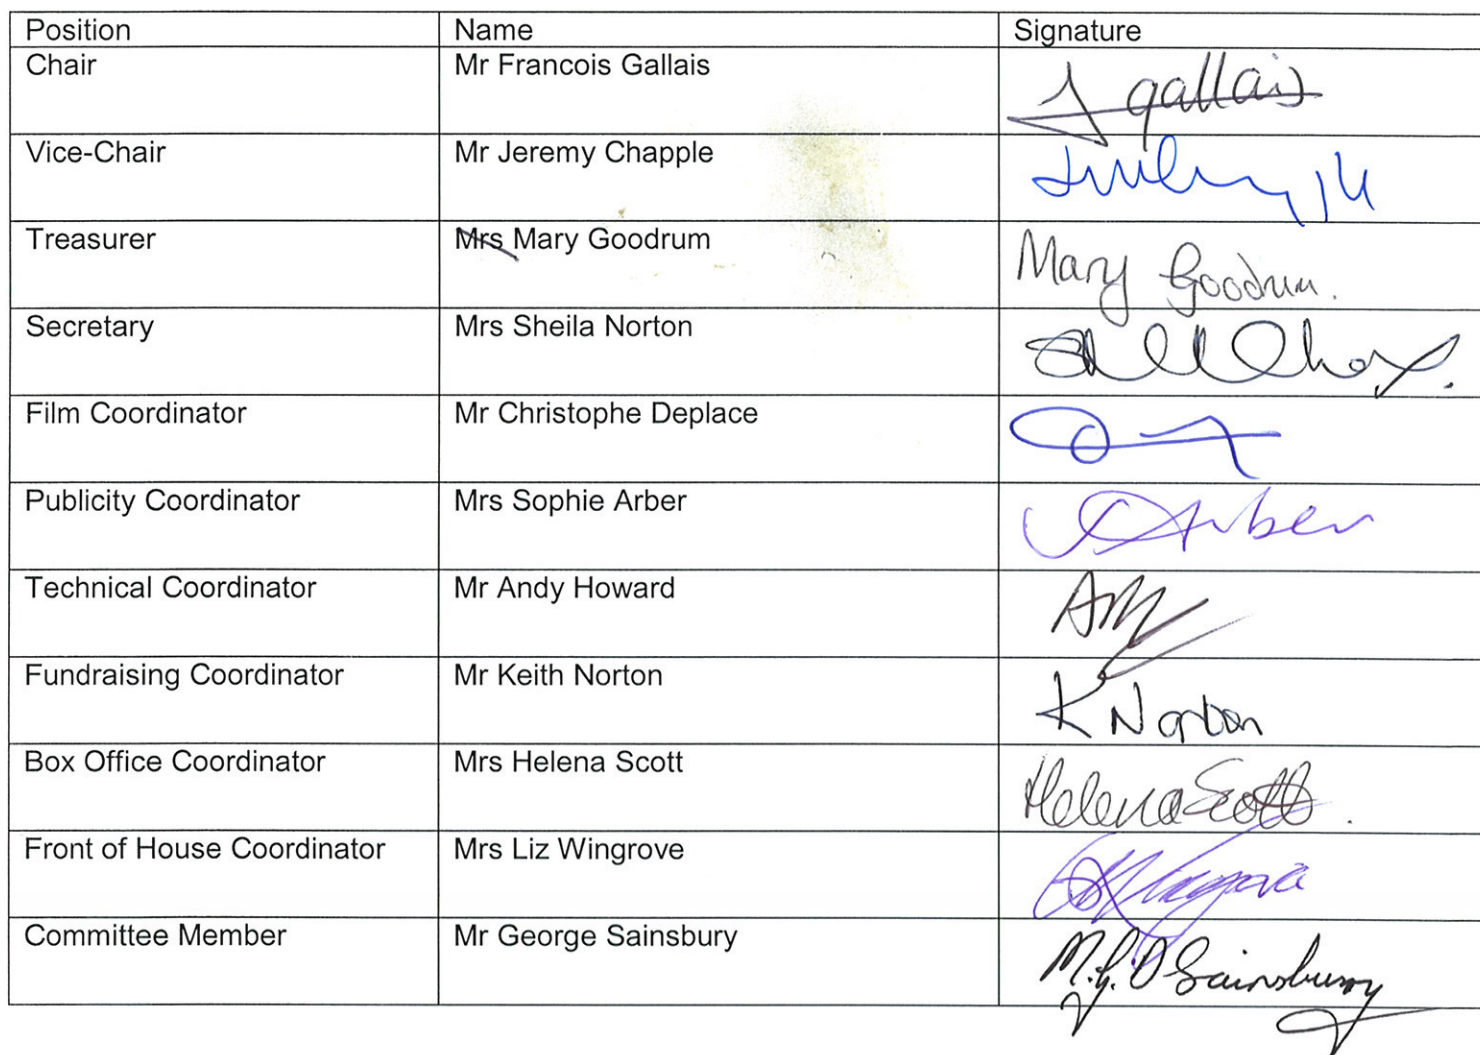 Position Name Signature
Chair Mr Francois Gallais gallais
Vice-Chair Mr Jeremy Chapple
Treasurer Mrs Mary Goodrum Mary Goodrum.
Secretary Mrs Sheila Norton
Film Coordinator Mr Christophe Deplace
Publicity Coordinator Mrs Sophie Arber Arber
Technical Coordinator Mr Andy Howard
Fundraising Coordinator Mr Keith Norton K Norton
Box Office Coordinator Mrs Helena Scott Helena Scott.
Front of House Coordinator Mrs Liz Wingrove
Committee Member Mr George Sainsbury M.G.D Sainsbury